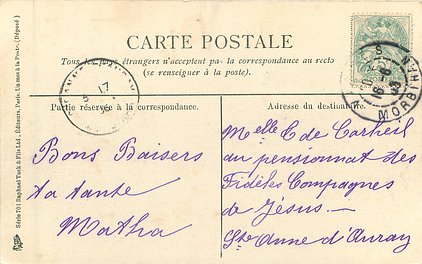 CARTE POSTALE
Tous les pays étrangers n'acceptent pas la correspondance au recto
(se renseigner à la poste).
Partie réservée à la correspondance.
Bons Baisers
ta tante
Matha
Adresse du destinataire.
Melle C de Carheil
au pensionnat des
Fidèles Compagnes
de Jésus
Ste Anne d'Auray
MORBIHAN
17
Série 701 Raphael Tuck & Fils Ltd, Éditeurs, Paris. Un mot à la Poste. (Déposé)